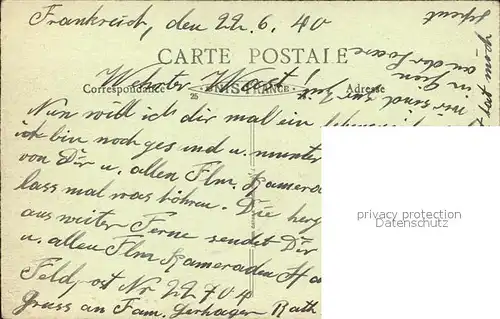 Frankreich, den 22.6.40
CARTE POSTALE
Correspondance
25
UNIS FRANCE
Adresse
Werter Wast!
Nun will ich dir mal ein
ich bin noch gesund u. munter
von Dir u. allen Flm. Kamera
lass mal was hören. Die herz
aus weiter Ferne sendet Dir
u. allen Flm Kameraden
Feldpost Nr 22704
Gruss an Fam. Gerhager Rath
wir sind zur Zeit
in Gien
an der Loire
privacy protection
Datenschutz